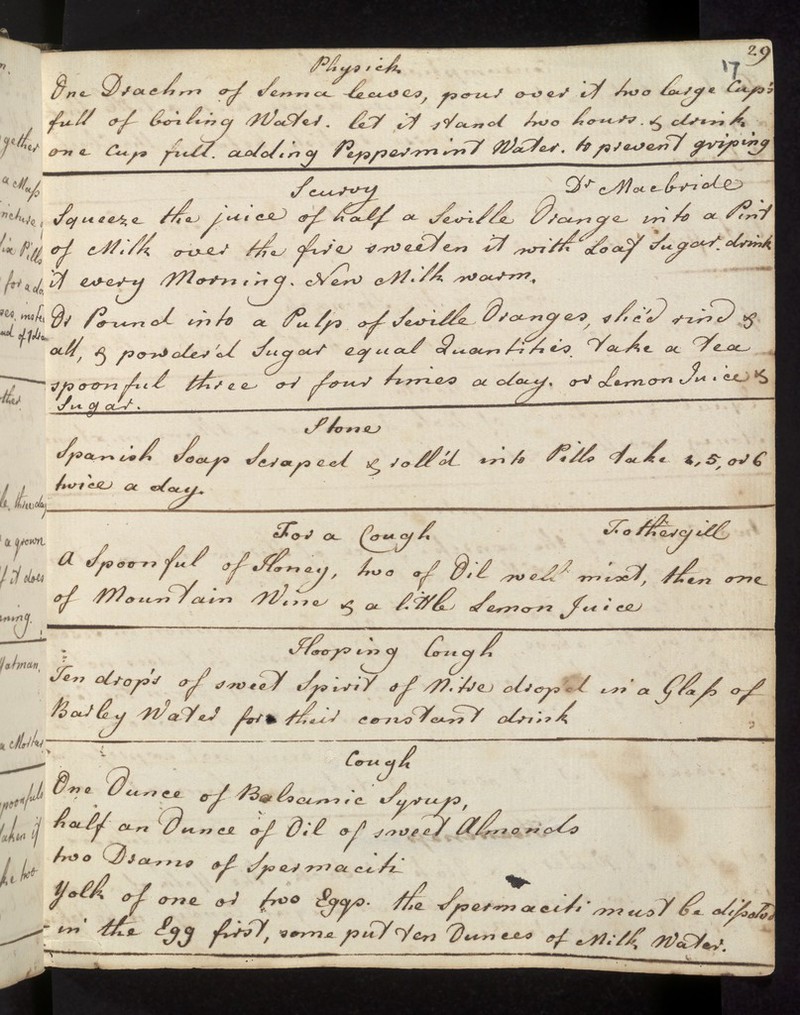 29
17
Physick
One Drachm of Senna leaves, pour over it two large Cup's
full of boiling Water. let it stand two hours. & drink
one Cup full. adding Peppermint Water. to prevent griping
Scurvy Dr Macbride
Squeeze the juice of half a Seville Orange into a Pint
of Milk over the fire sweeten it with Loaf Sugar. drink
it every Morning. New Milk warm.
Or Pound into a Pulp of Seville Oranges, slic'd rind &
all, & powder'd Sugar equal Quantities. take a tea
spoonful three or four times a day. or Lemon Juice &
Sugar.
Stone
Spanish Soap Scraped & roll'd into Pills take 4, 5, or 6
twice a day.
For a Cough Fothergill
A Spoonful of Honey, two of Oil well mixt, then one
of Mountain Wine & a little Lemon Juice
Hooping Cough
Ten drop's of sweet Spirit of Nitre drop'd in a Glass of
Barley Water for their constant drink
Cough
One Ounce of Balsamic Syrup,
half an Ounce of Oil of sweet Almonds
two Drams of Spermaciti
Yolk of one or two Eggs. the Spermaciti must be dissolved
in the Egg first, some put ten Ounces of Milk Water.